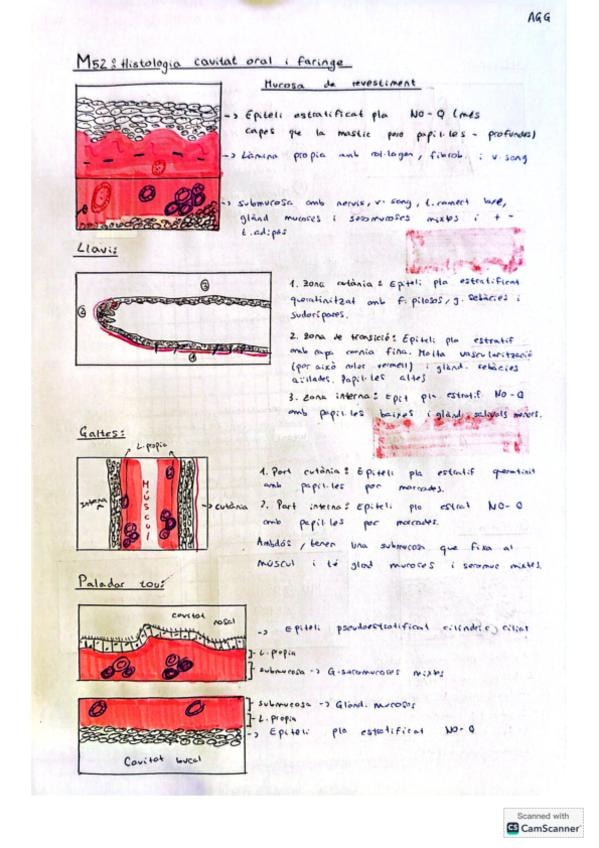 AGG
M52: Histologia cavitat oral i faringe
Mucosa de revestiment
-> Epiteli estratificat pla NO-Q (més
capes que la mastic pero papil·les - profundes)
-> Làmina propia amb col·lagen, fibrob. i v. sang
-> submucosa amb nervis, v. sang, t. conect laxe,
glànd mucoses i seromucoses mixtes i + -
t. adipós
Llavi:
1. Zona cutània: Epiteli pla estratificat
queratinitzat amb f. pilosos, g. sebàcies i
sudorípares.
2. Zona de transició: Epiteli pla estratif
amb capa cornia fina. Molta vascularització
(per això color vermell) i glànd. sebàcies
aïllades. Papil·les altes
3. Zona interna: Epit pla estratif. NO-Q
amb papil·les baixes i glànd. salivals menors.
Galtes:
L. propia
interna
MÚSCUL
cutània
1. Part cutània: Epiteli pla estratif queratinit
amb papil·les poc marcades.
2. Part interna: Epiteli pla estrat NO-Q
amb papil·les poc marcades.
Ambdós, tenen una submucosa que fixa al
múscul i té glànd mucoses i seromuc mixtes.
Paladar tou:
cavitat nasal
-> Epiteli pseudoestratificat cilíndric ciliat
L. propia
submucosa -> G. seromucoses mixtes
submucosa -> Glànd. mucosas
L. propia
-> Epiteli pla estratificat NO-Q
Cavitat bucal
Scanned with
CS CamScanner